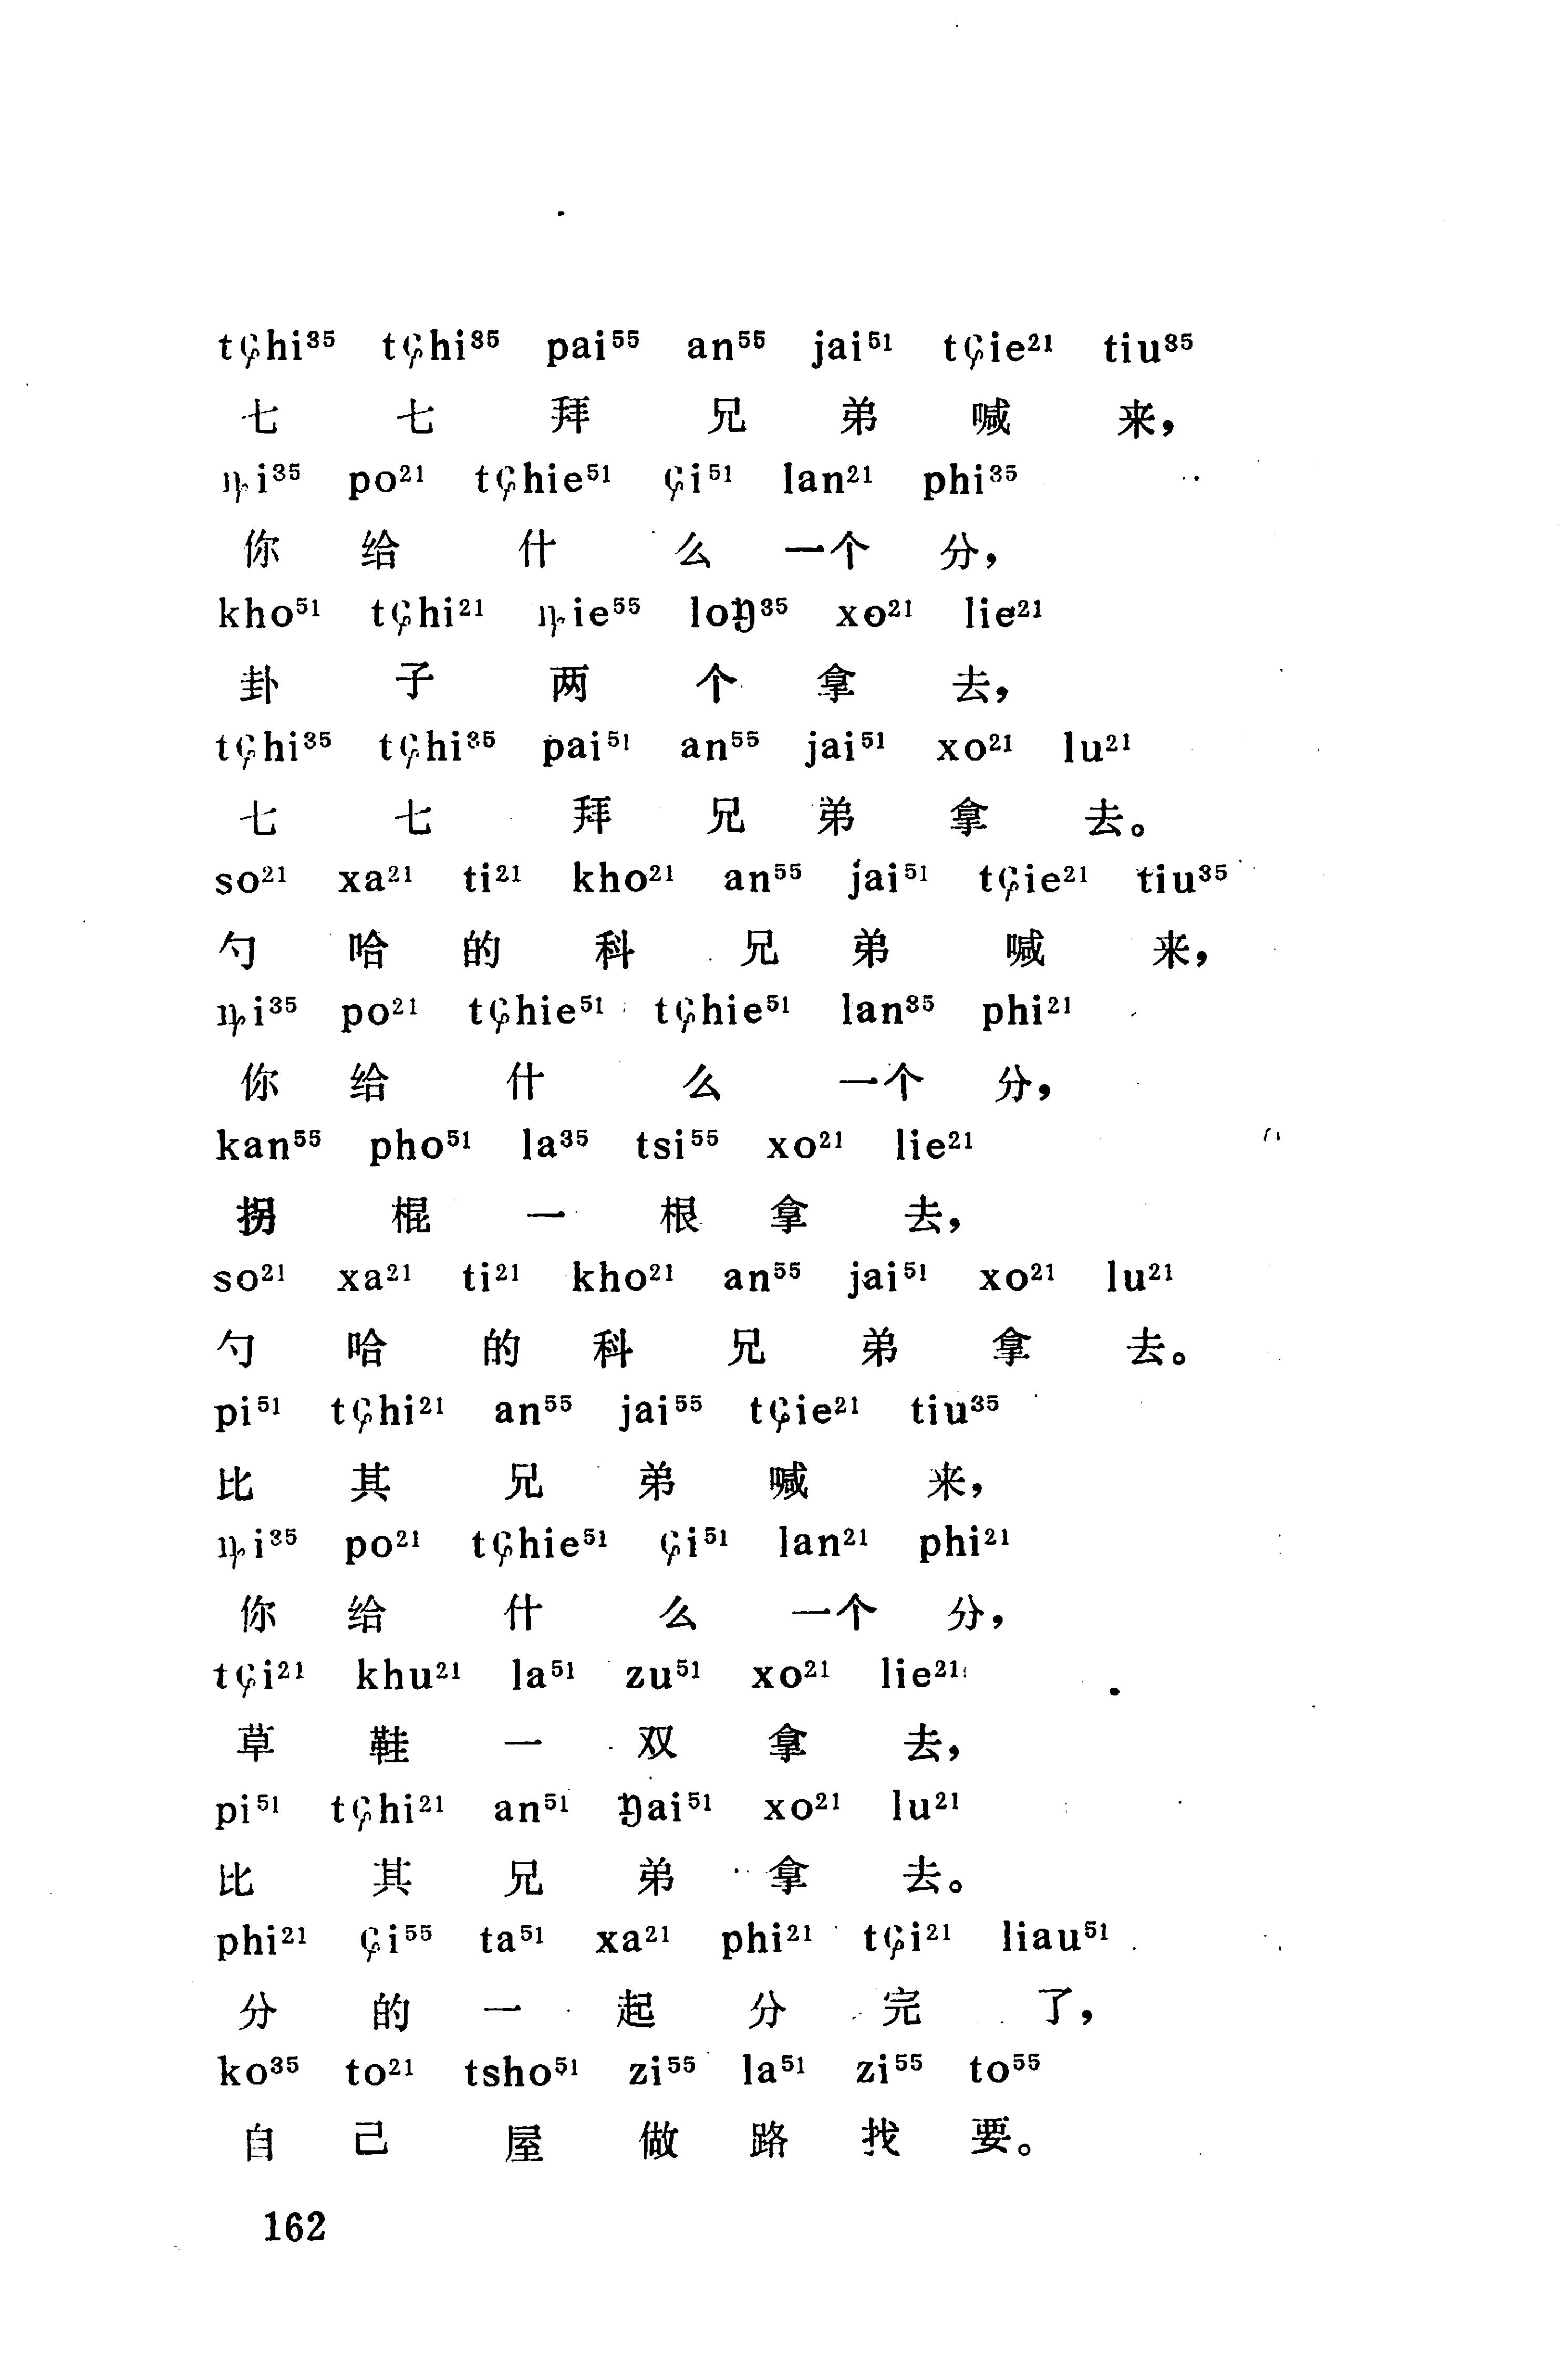 tɕhi³⁵ tɕhi³⁵ pai⁵⁵ an⁵⁵ jai⁵¹ tɕie²¹ tiu³⁵
七 七 拜 兄 弟 喊 来，
ȵi³⁵ po²¹ tɕhie⁵¹ ɕi⁵¹ lan²¹ phi³⁵
你 给 什 么 一个 分，
kho⁵¹ tɕhi²¹ ȵie⁵⁵ loŋ³⁵ xo²¹ lie²¹
卦 子 两 个 拿 去，
tɕhi³⁵ tɕhi³⁵ pai⁵¹ an⁵⁵ jai⁵¹ xo²¹ lu²¹
七 七 拜 兄 弟 拿 去。
so²¹ xa²¹ ti²¹ kho²¹ an⁵⁵ jai⁵¹ tɕie²¹ tiu³⁵
勺 哈 的 科 兄 弟 喊 来，
ȵi³⁵ po²¹ tɕhie⁵¹ tɕhie⁵¹ lan³⁵ phi²¹
你 给 什 么 一个 分，
kan⁵⁵ pho⁵¹ la³⁵ tsi⁵⁵ xo²¹ lie²¹
拐 棍 一 根 拿 去，
so²¹ xa²¹ ti²¹ kho²¹ an⁵⁵ jai⁵¹ xo²¹ lu²¹
勺 哈 的 科 兄 弟 拿 去。
pi⁵¹ tɕhi²¹ an⁵⁵ jai⁵⁵ tɕie²¹ tiu³⁵
比 其 兄 弟 喊 来，
ȵi³⁵ po²¹ tɕhie⁵¹ ɕi⁵¹ lan²¹ phi²¹
你 给 什 么 一个 分，
tɕi²¹ khu²¹ la⁵¹ zu⁵¹ xo²¹ lie²¹
草 鞋 一 双 拿 去，
pi⁵¹ tɕhi²¹ an⁵¹ ŋai⁵¹ xo²¹ lu²¹
比 其 兄 弟 拿 去。
phi²¹ ɕi⁵⁵ ta⁵¹ xa²¹ phi²¹ tɕi²¹ liau⁵¹
分 的 一 起 分 完 了，
ko³⁵ to²¹ tsho⁵¹ zi⁵⁵ la⁵¹ zi⁵⁵ to⁵⁵
自 己 屋 做 路 找 要。
162